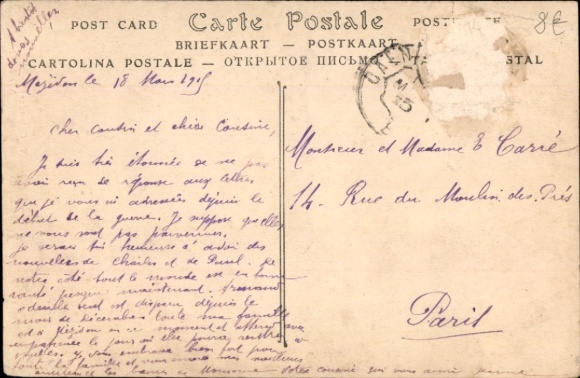 POST CARD Carte Postale
BRIEFKAART — POSTKAART
CARTOLINA POSTALE — ОТКРЫТОЕ ПИСЬМО
8€
CAEN
Mézidon le 18 Mars 1915
Cher cousin et chère Cousine,
Je suis très étonnée de ne pas
avoir reçu de réponse aux lettres
que je vous ai adressées depuis le
début de la guerre. Je suppose qu'elles
ne vous sont pas parvenues.
Je serais très heureuse d'avoir des
nouvelles de Charles et de
notre côté tout le monde est en bonne
santé jusque maintenant.
seul est disparu depuis le
mois de Décembre toute ma famille
est à Mézidon en ce moment et attend avec
impatience le jour où elle pourra rentrer
vous embrasse bien fort pour
toute la famille et vous envoie nos meilleures
Votre cousine qui vous aime
Monsieur et Madame E Carré
14 Rue du Moulin des Prés
Paris